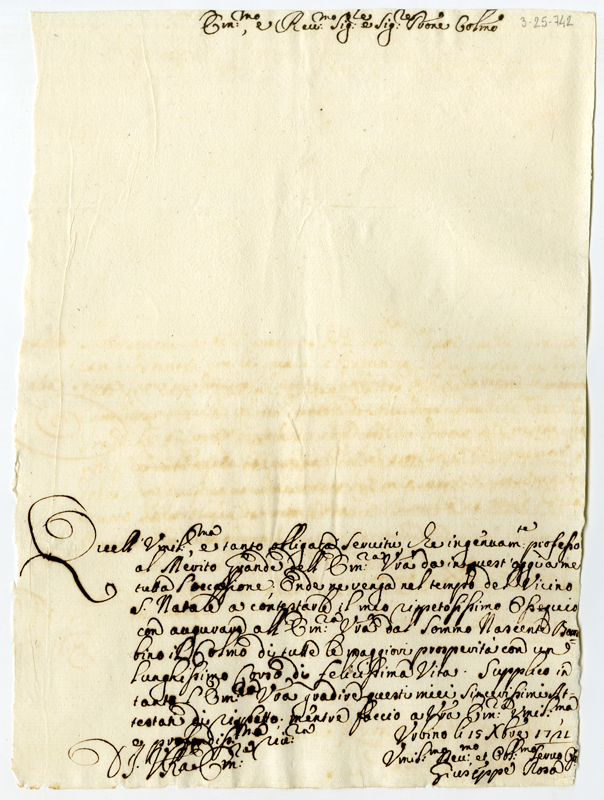 Em:mo, e Reu:mo Sig:re e Sig:re Prone Colmo
3-25-742
Quell' Vmil:ma, e tanto obligata Seruitù, che ingenuam:te professo
al Merito grande dell' Em:za Vra da in quest'
tutta l'occasione. Onde ne vengo nel tempo del Vicino
S. Natale a contestarle il mio Ossequio
con augurare all' Em:za Vra dal Sommo Nascente Bam
bino il Colmo di tutte le maggiori prosperità con un
lunghissimo Corso di felicissima Vita. Supplico in
tanto l'Em:za Vra gradire questi miei sincerissimi At-
testati di rispetto, mentre faccio a Vra Em:za Vmil:ma
e profondiss:ma
D. V. Vra Em:za
Vrbino li 15 Xbre 1721
Vmil:mo Deu:mo et Obl:mo Seruo
Giuseppe Rosa